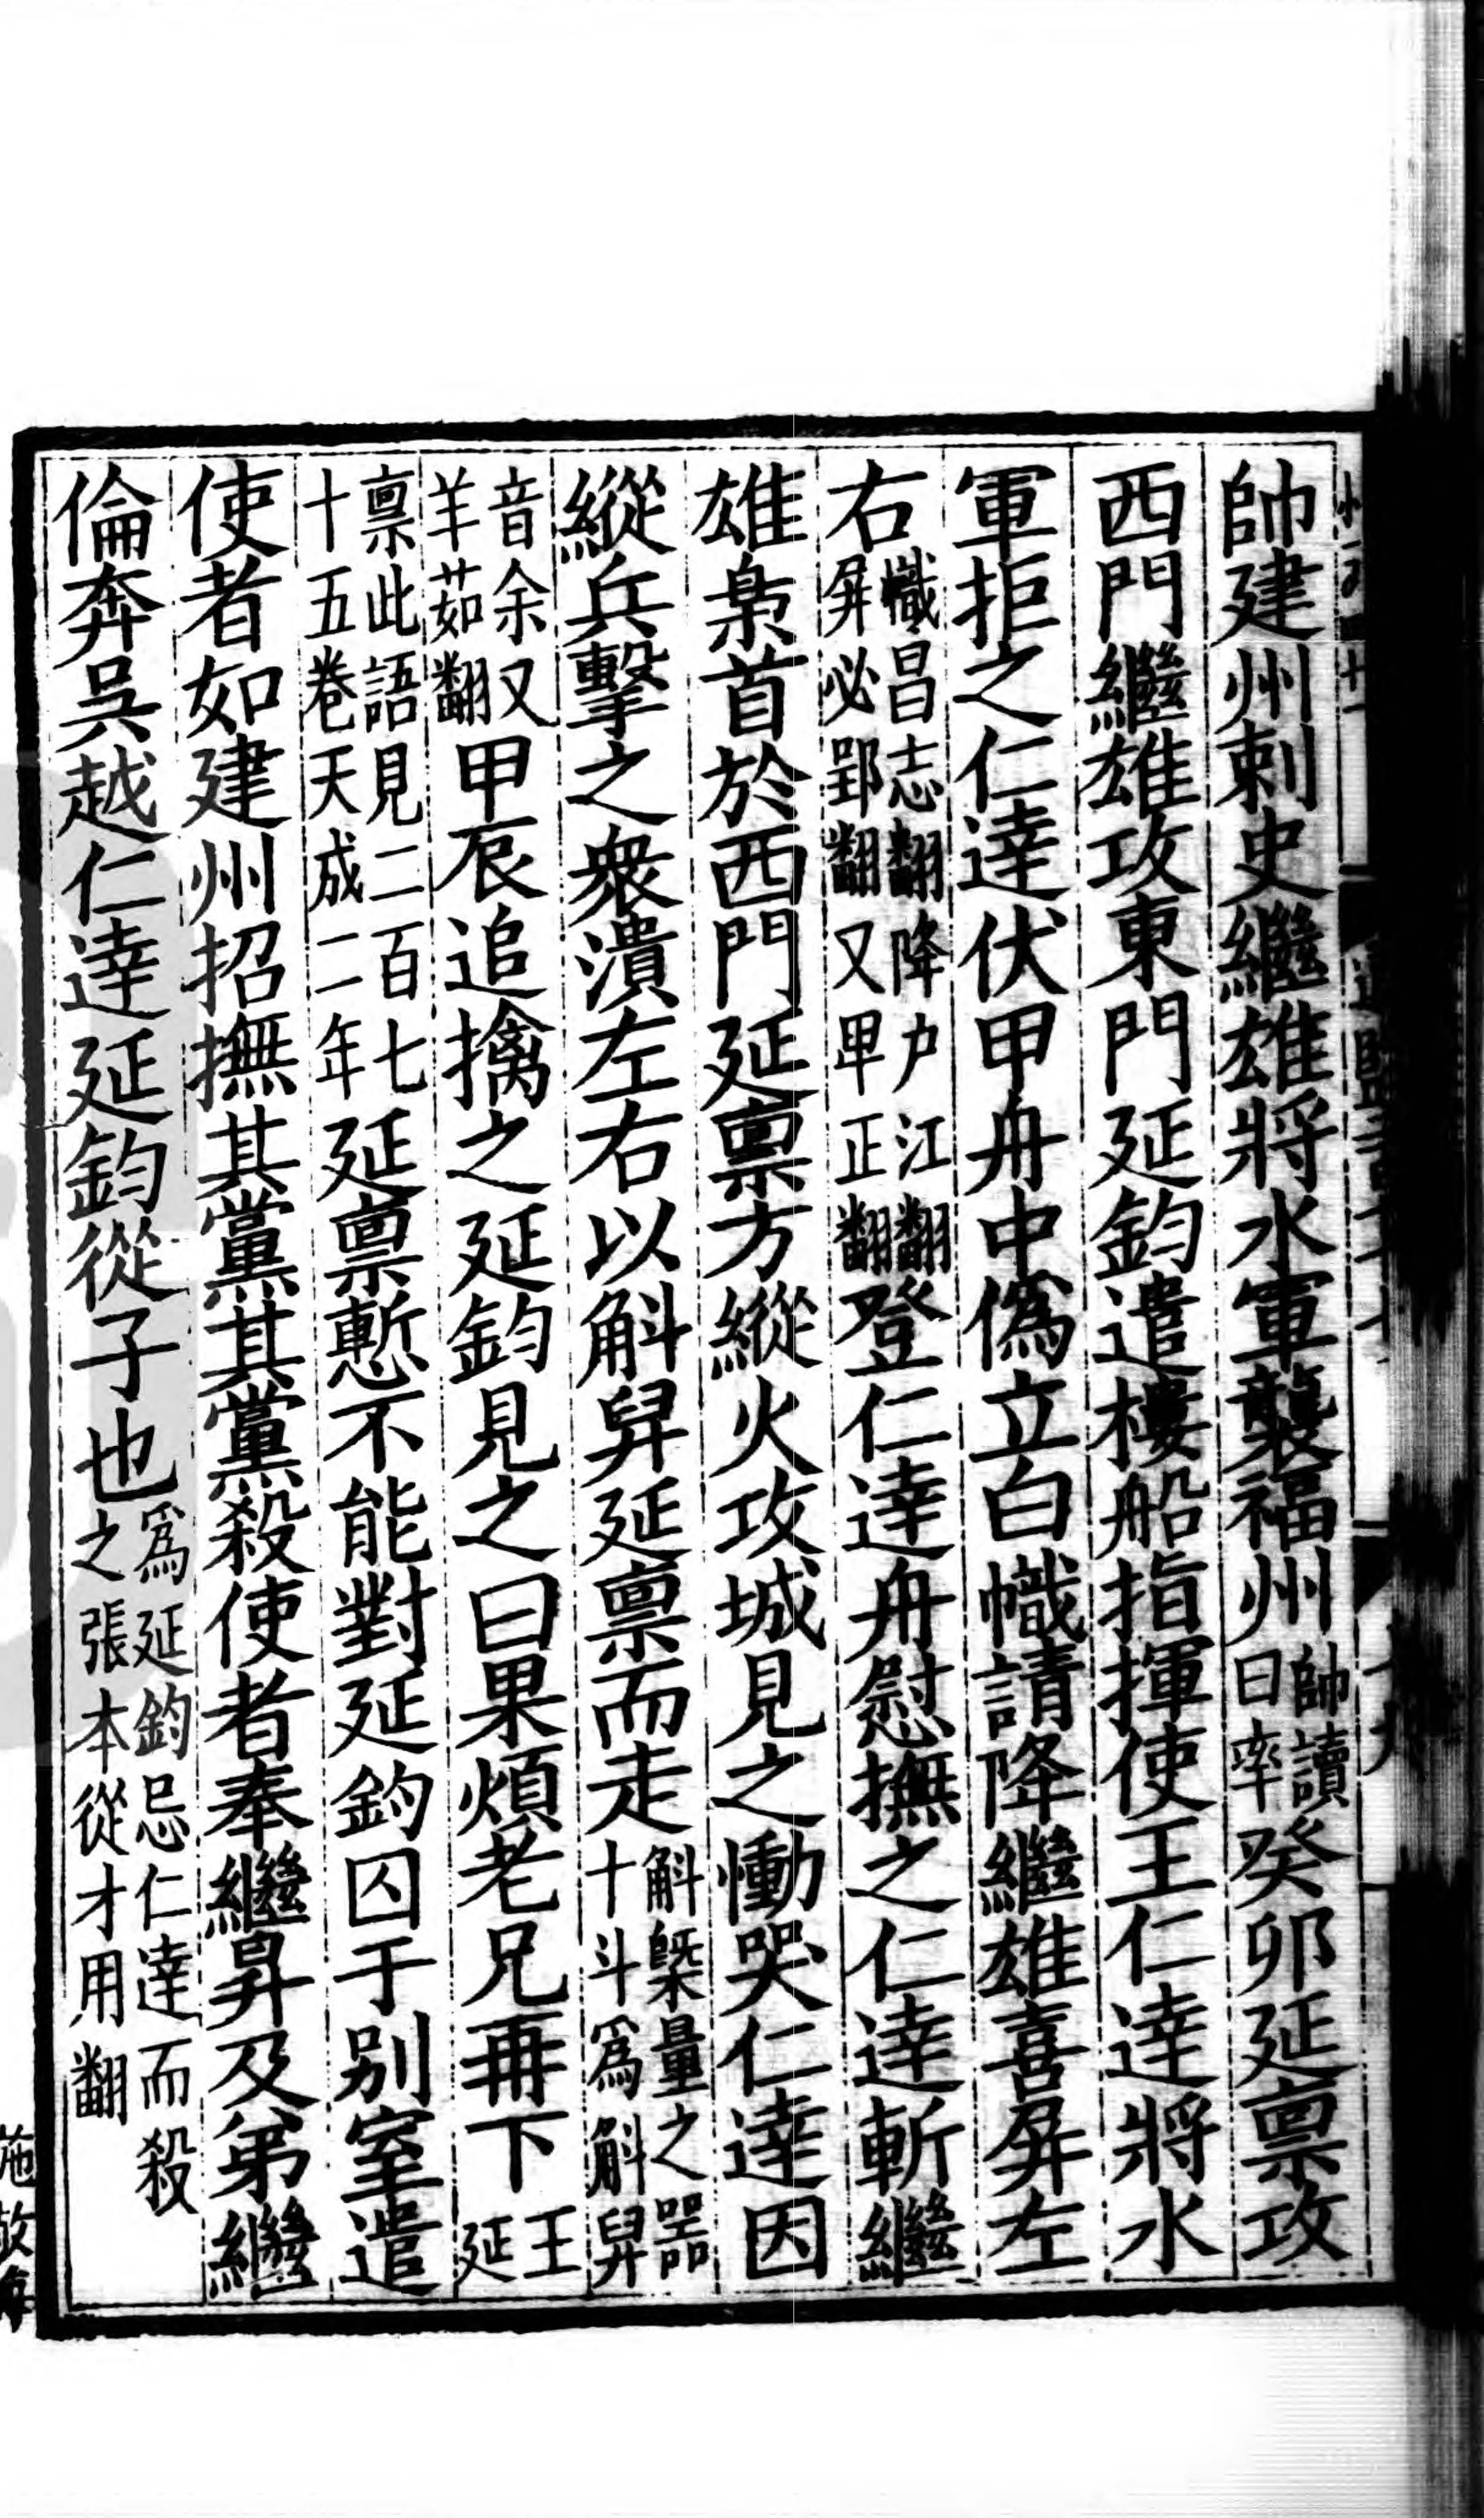 帥建州刺史繼雄將水軍襲福州帥讀曰率癸卯延禀攻
西門繼雄攻東門延鈞遣樓船指揮使王仁達將水
軍拒之仁達伏甲舟中偽立白幟請降繼雄喜屏左
右幟昌志翻降户江翻屏必郢翻又卑正翻登仁達舟慰撫之仁達斬繼
雄梟首於西門延禀方縱火攻城見之慟哭仁達因
縱兵擊之衆潰左右以斛舁延禀而走斛槩量之器十斗爲斛舁
音余又羊茹翻甲辰追擒之延鈞見之曰果煩老兄再下王延
禀此語見二百七十五卷天成二年延禀慙不能對延鈞囚于別室遣
使者如建州招撫其黨其黨殺使者奉繼昇及弟繼
倫奔吳越仁達延鈞從子也爲延鈞忌仁達而殺之張本從才用翻